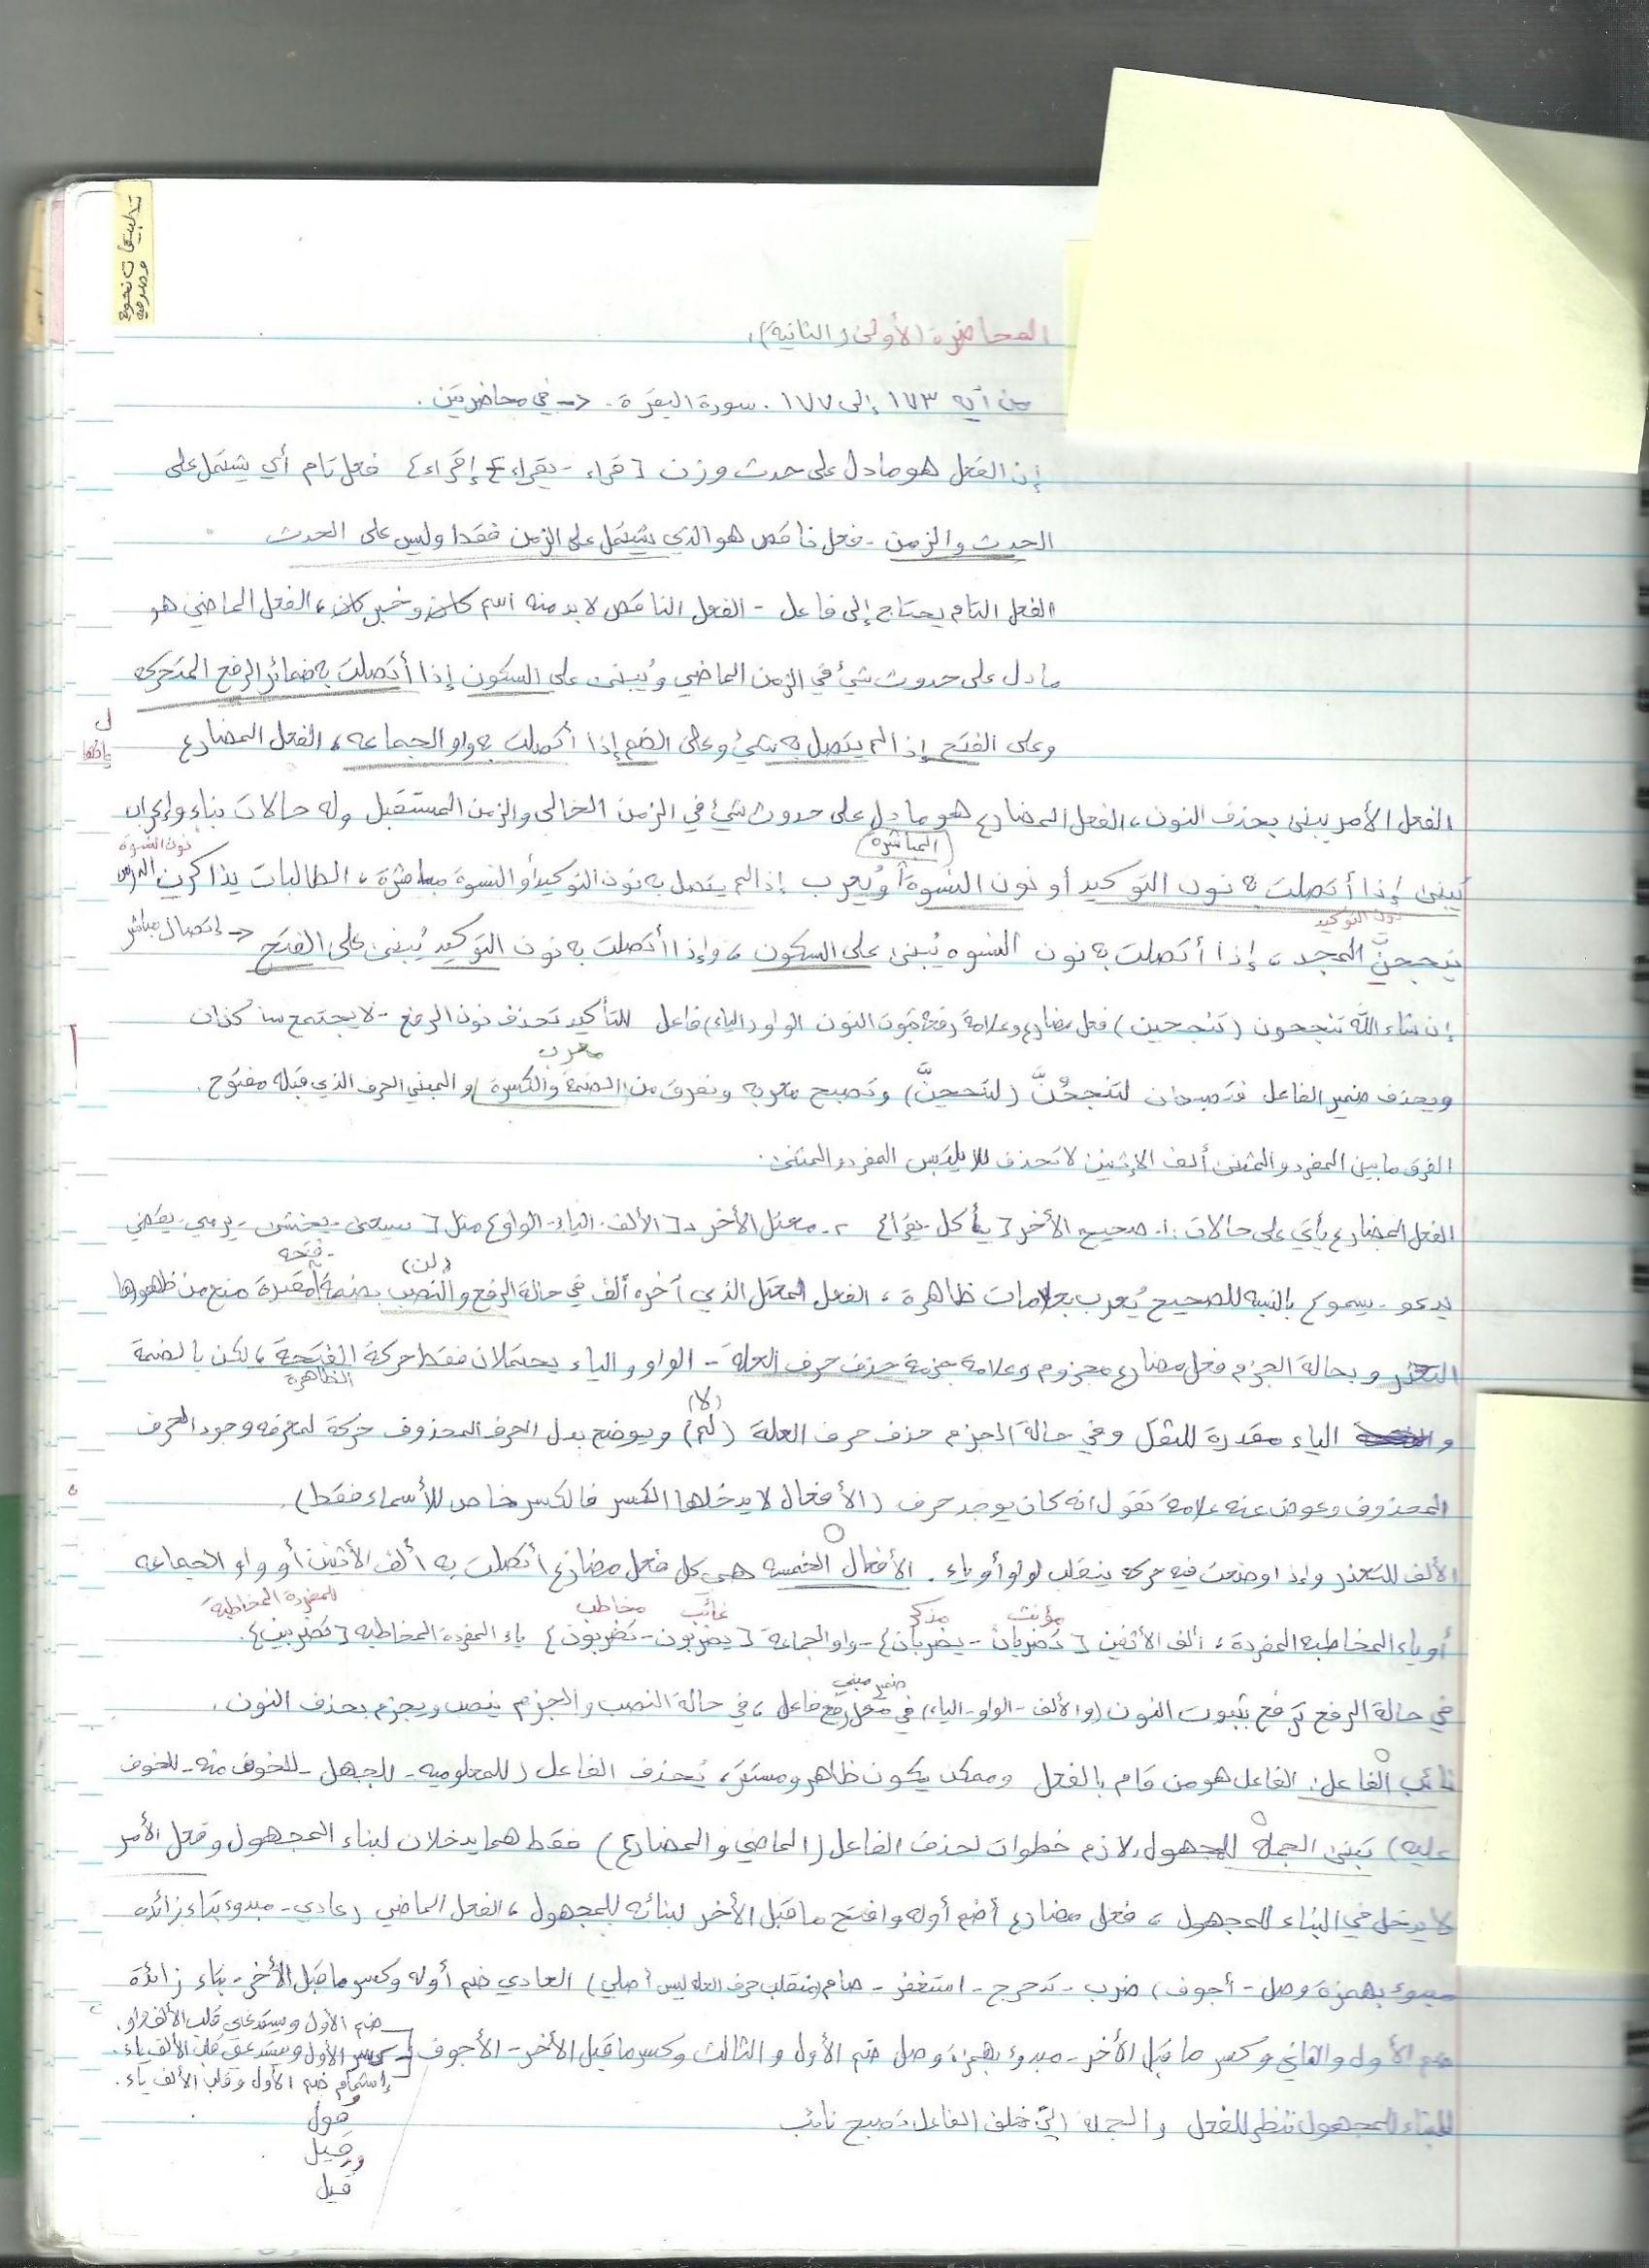 تطبيقات نحوية
وصرفية
المحاضرة (الأولى والثانية).
من آية ١٧٣ إلى ١٧٧ . سورة البقرة . -> في محاضرتين .
إن الفعل هو ما دل على حدث وزن { قراء - يقراء - إقراء } فعل تام أي يشتمل على
الحدث والزمن - فعل ناقص هو الذي يشتمل على الزمن فقط وليس على الحدث
الفعل التام يحتاج إلى فاعل - الفعل الناقص لا بد منه اسم كان وخبر كان ، الفعل الماضي هو
ما دل على حدوث شيئ في الزمن الماضي ويُبنى على السكون إذا أتصلت به ضمائر الرفع المتحركه
وعلى الفتح إذا لم يتصل به شيئ وعلى الضم إذا أتصلت به واو الجماعه ، الفعل المضارع
الفعل الأمر يبنى بحذف النون ، الفعل المضارع هو ما دل على حدوث شيئ في الزمن الحالي والزمن المستقبل وله حالات بناء وإعراب
(المباشرة) نون النسوة
يبنى إذا أتصلت به نون التوكيد أو نون النسوة أو يُعرب إذا لم يتصل به نون التوكيد أو النسوة مباشرة ، الطالبات يذاكرن الدرس
نون التوكيد
ينجحنَّ المجد ، إذا أتصلت به نون النسوه يُبنى على السكون ، وإذا أتصلت به نون التوكيد يُبنى على الفتح -> إتصال مباشر
إن شاء الله تنجحون (تنجحين) فعل مضارع وعلامة رفعه ثبوت النون الواو (الياء) فاعل للتأكيد تحذف نون الرفع - لا يجتمع ساكنان
معرب
ويحذف ضمير الفاعل فتصبحان لتنجحُنَّ (لتنجحِنَّ) وتصبح معربه ونفرق من الضمة والكسرة / و المبني الحرف الذي قبله مفتوح .
الفرق ما بين المفرد والمثنى ألف الإثنين لا تحذف للا يلتبس المفرد والمثنى .
الفعل المضارع يأتي على حالات : ١- صحيح الأخر { يأكل - يقرأ } ٢- معتل الأخر { الألف - الياء - الواو } مثل { يسعى - يخشى - يرمي - يقضي
(لن) - فتحه
يدعو - يسمو } بالنسبه للصحيح يُعرب بعلامات ظاهرة ، الفعل المعتل الذي آخره ألف في حالة الرفع والنصب بضمة مقدرة منع من ظهورها
التعذر وبحالة الجزم فعل مضارع مجزوم وعلامة جزمة حذف حرف العلة - الواو والياء يحتملان فقط حركة الفتحة ، لكن بالضمة
الظاهرة
(لا)
و الياء مقدرة للثقل وفي حالة الجزم حذف حرف العلة (لم) ويوضح بدل الحرف المحذوف حركة لمعرفه وجود الحرف
المحذوف وعوض عنه علامة تقول انه كان يوجد حرف (الأفعال لا يدخلها الكسر فالكسر خاص للأسماء فقط) .
الألف للتعذر وإذا وضعت فيه حركه ينقلب لواو أو ياء . الأفعال الخمسه هي كل فعل مضارع أتصلت به ألف الأثنين أو واو الجماعه
مؤنث مذكر غائب مخاطب للمفردة المخاطبة
أو ياء المخاطبه المفردة ، ألف الأثنين { تضربان - يضربان } - واو الجماعة { يضربون - تضربون } ياء المفردة المخاطبه { تضربين } .
ضمير مبني
في حالة الرفع ترفع بثبوت النون (والألف - الواو - الياء) في محل رفع فاعل ، في حالة النصب والجزم ينصب ويجزم بحذف النون .
نائب الفاعل : الفاعل هو من قام بالفعل وممكن يكون ظاهر ومستتر ، يُحذف الفاعل (للمعلوميه - للجهل - للخوف منه - للخوف
عليه) تبنى الجملة للمجهول ، لازم خطوات لحذف الفاعل (الماضي والمضارع) فقط هما يدخلان لبناء المجهول وفعل الأمر
لا يدخل في البناء للمجهول ، فعل مضارع أضم أوله وافتح ما قبل الأخر لبنائه للمجهول ، الفعل الماضي (عادي - مبدوء بتاء زائده
مبدوء بهمزة وصل - أجوف) ضرب - تدحرج - استغفر - صام (منقلب حرف العله ليس أصلي) العادي ضم أوله وكسر ما قبل الأخر - بتاء زائدة
ضم الأول والثاني وكسر ما قبل الأخر - مبدوء بهمزة وصل ضم الأول والثالث وكسر ما قبل الأخر - الأجوف
ضم الأول ويستدعى قلب الألف واو .
كسر الأول ويستدعي قلب الألف ياء .
إشمام ضم الأول وقلب الألف ياء .
للبناء للمجهول ننظر للفعل والجملة التي خلف الفاعل تصبح نائب
قيل